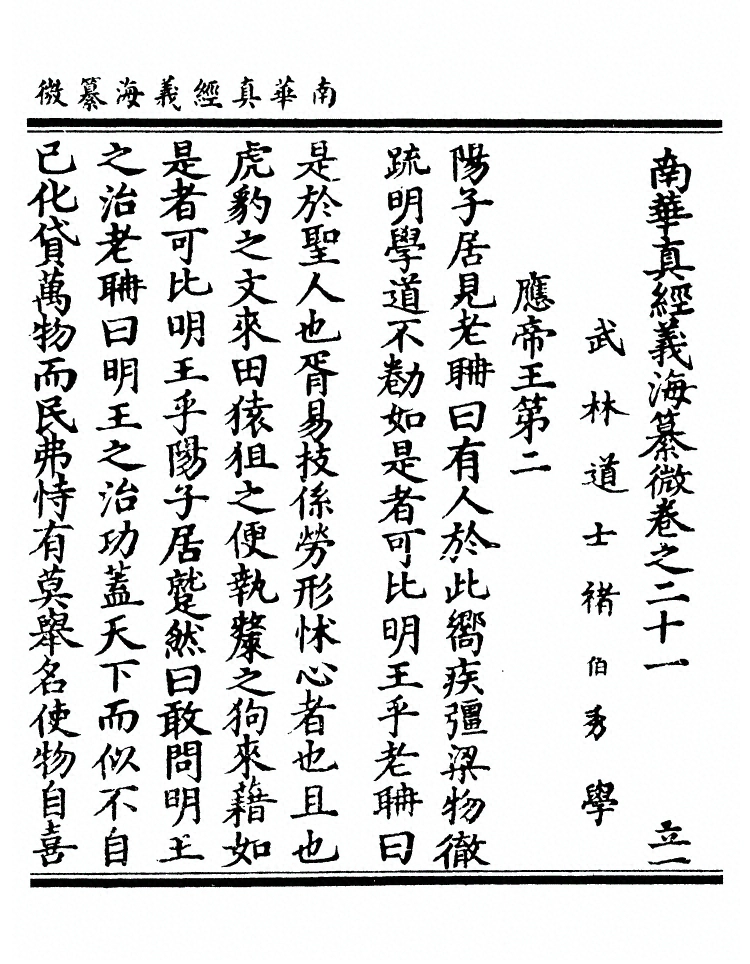 南華真經義海纂微
南華真經義海纂微卷之二十一 立一
武林道士褚伯秀學
應帝王第二
陽子居見老聃曰有人於此嚮疾彊梁物徹
疏明學道不勌如是者可比明王乎老聃曰
是於聖人也胥易技係勞形怵心者也且也
虎豹之文來田猿狙之便執斄之狗來藉如
是者可比明王乎陽子居蹵然曰敢問明王
之治老聃曰明王之治功蓋天下而似不自
已化貸萬物而民弗恃有莫舉名使物自喜